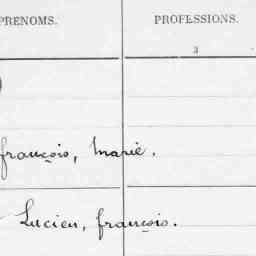 PRENOMS. PROFESSIONS.
3
françois, Marie.
Lucien, françois.